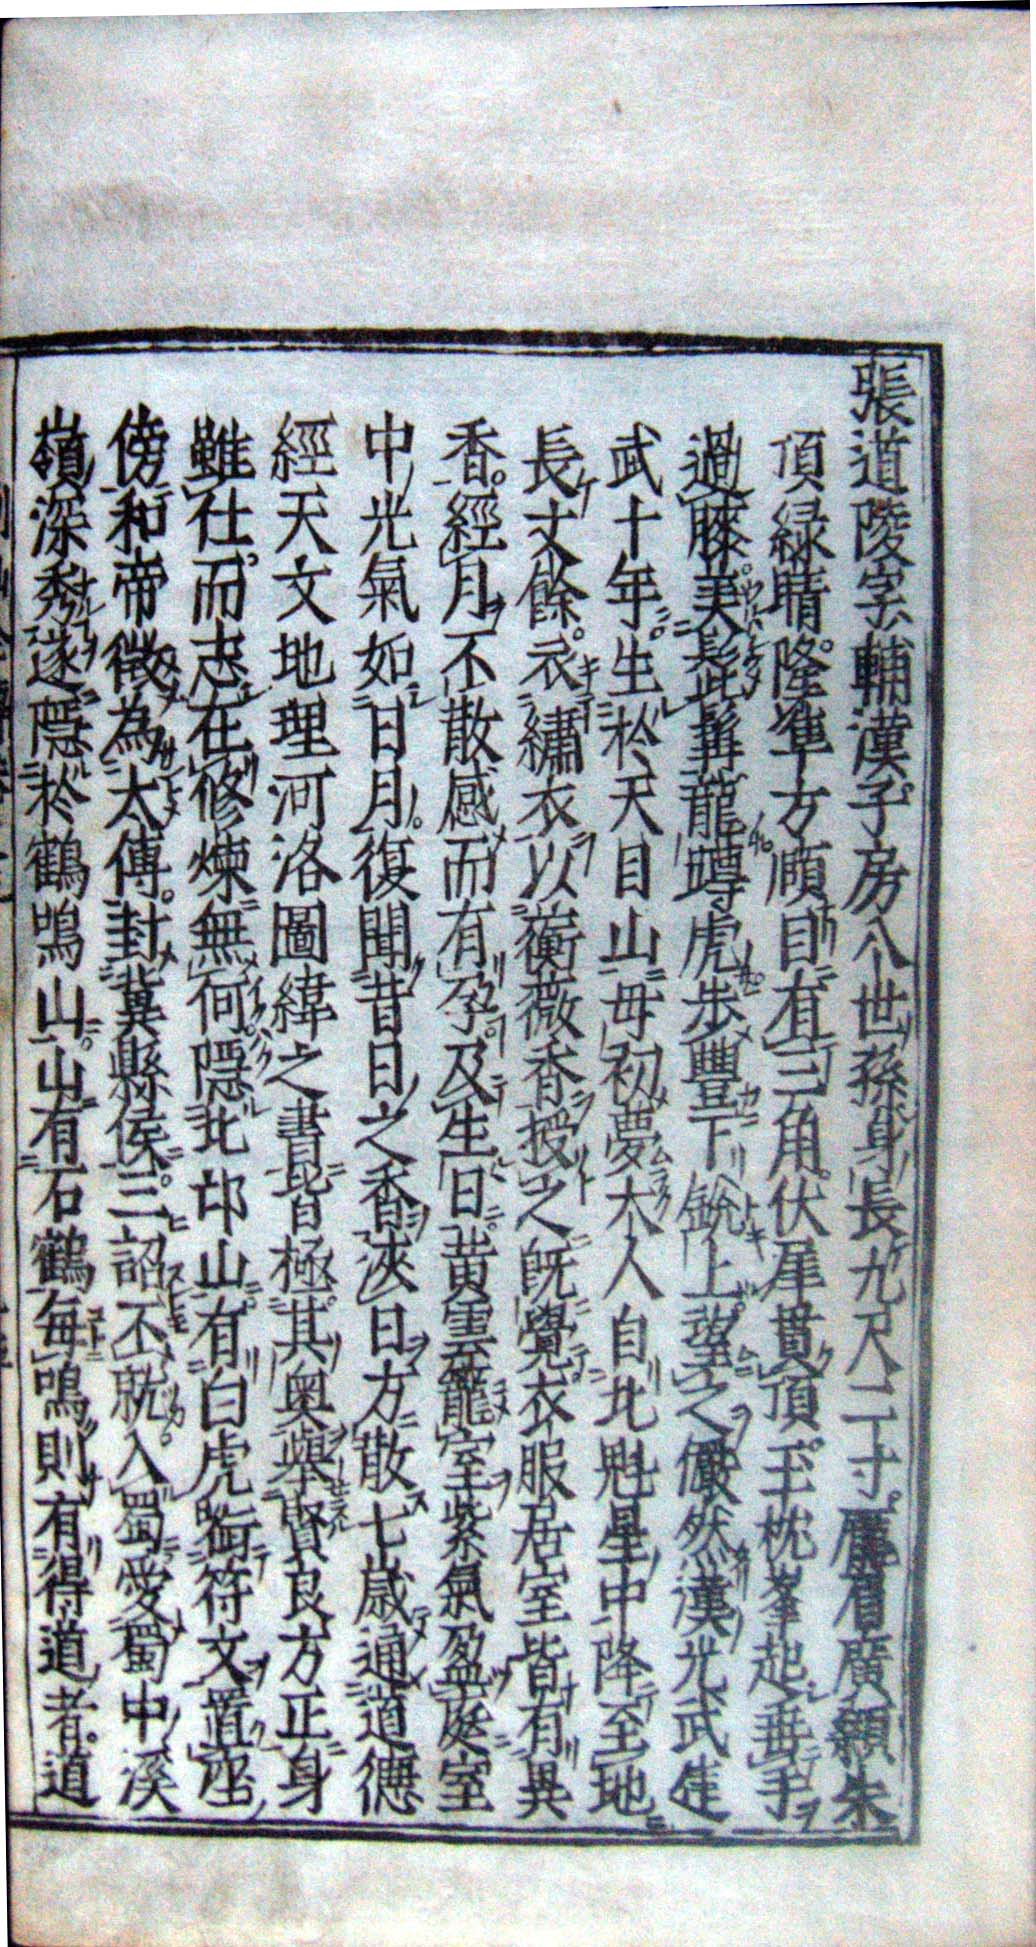 張道陵字輔漢子房八世孫身長九尺二寸龐眉廣顙朱
頂緑睛隆準方頤目有三角伏犀貫頂玉枕峯起垂手
過膝美髭髯龍蹲虎步豐下銳上望之儼然漢光武建
武十年生於天目山母初夢大人自北魁星中降至地
長丈餘衣繡衣以蘅薇香授之既覺衣服居室皆有異
香經月不散感而有孕及生日黄雲籠室紫氣盈庭室
中光氣如日月復聞昔日之香浹日方散七歳通道德
經天文地理河洛圖緯之書皆極其奥舉賢良方正身
雖仕而志在修煉無何隱北邙山有白虎銜符文置座
傍和帝徵為太傅封冀縣侯三詔不就入蜀愛蜀中溪
嶺深秀遂隱於鶴鳴山山有石鶴毎鳴則有得道者道